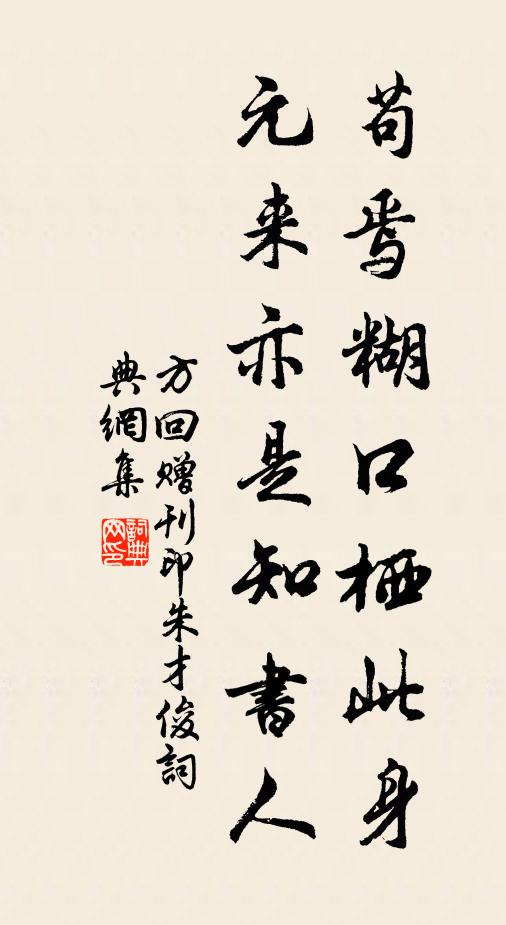 苟焉糊口栖此身
元来亦是知書人
方回赠刊印朱才俊詞
典網集
詞典网印